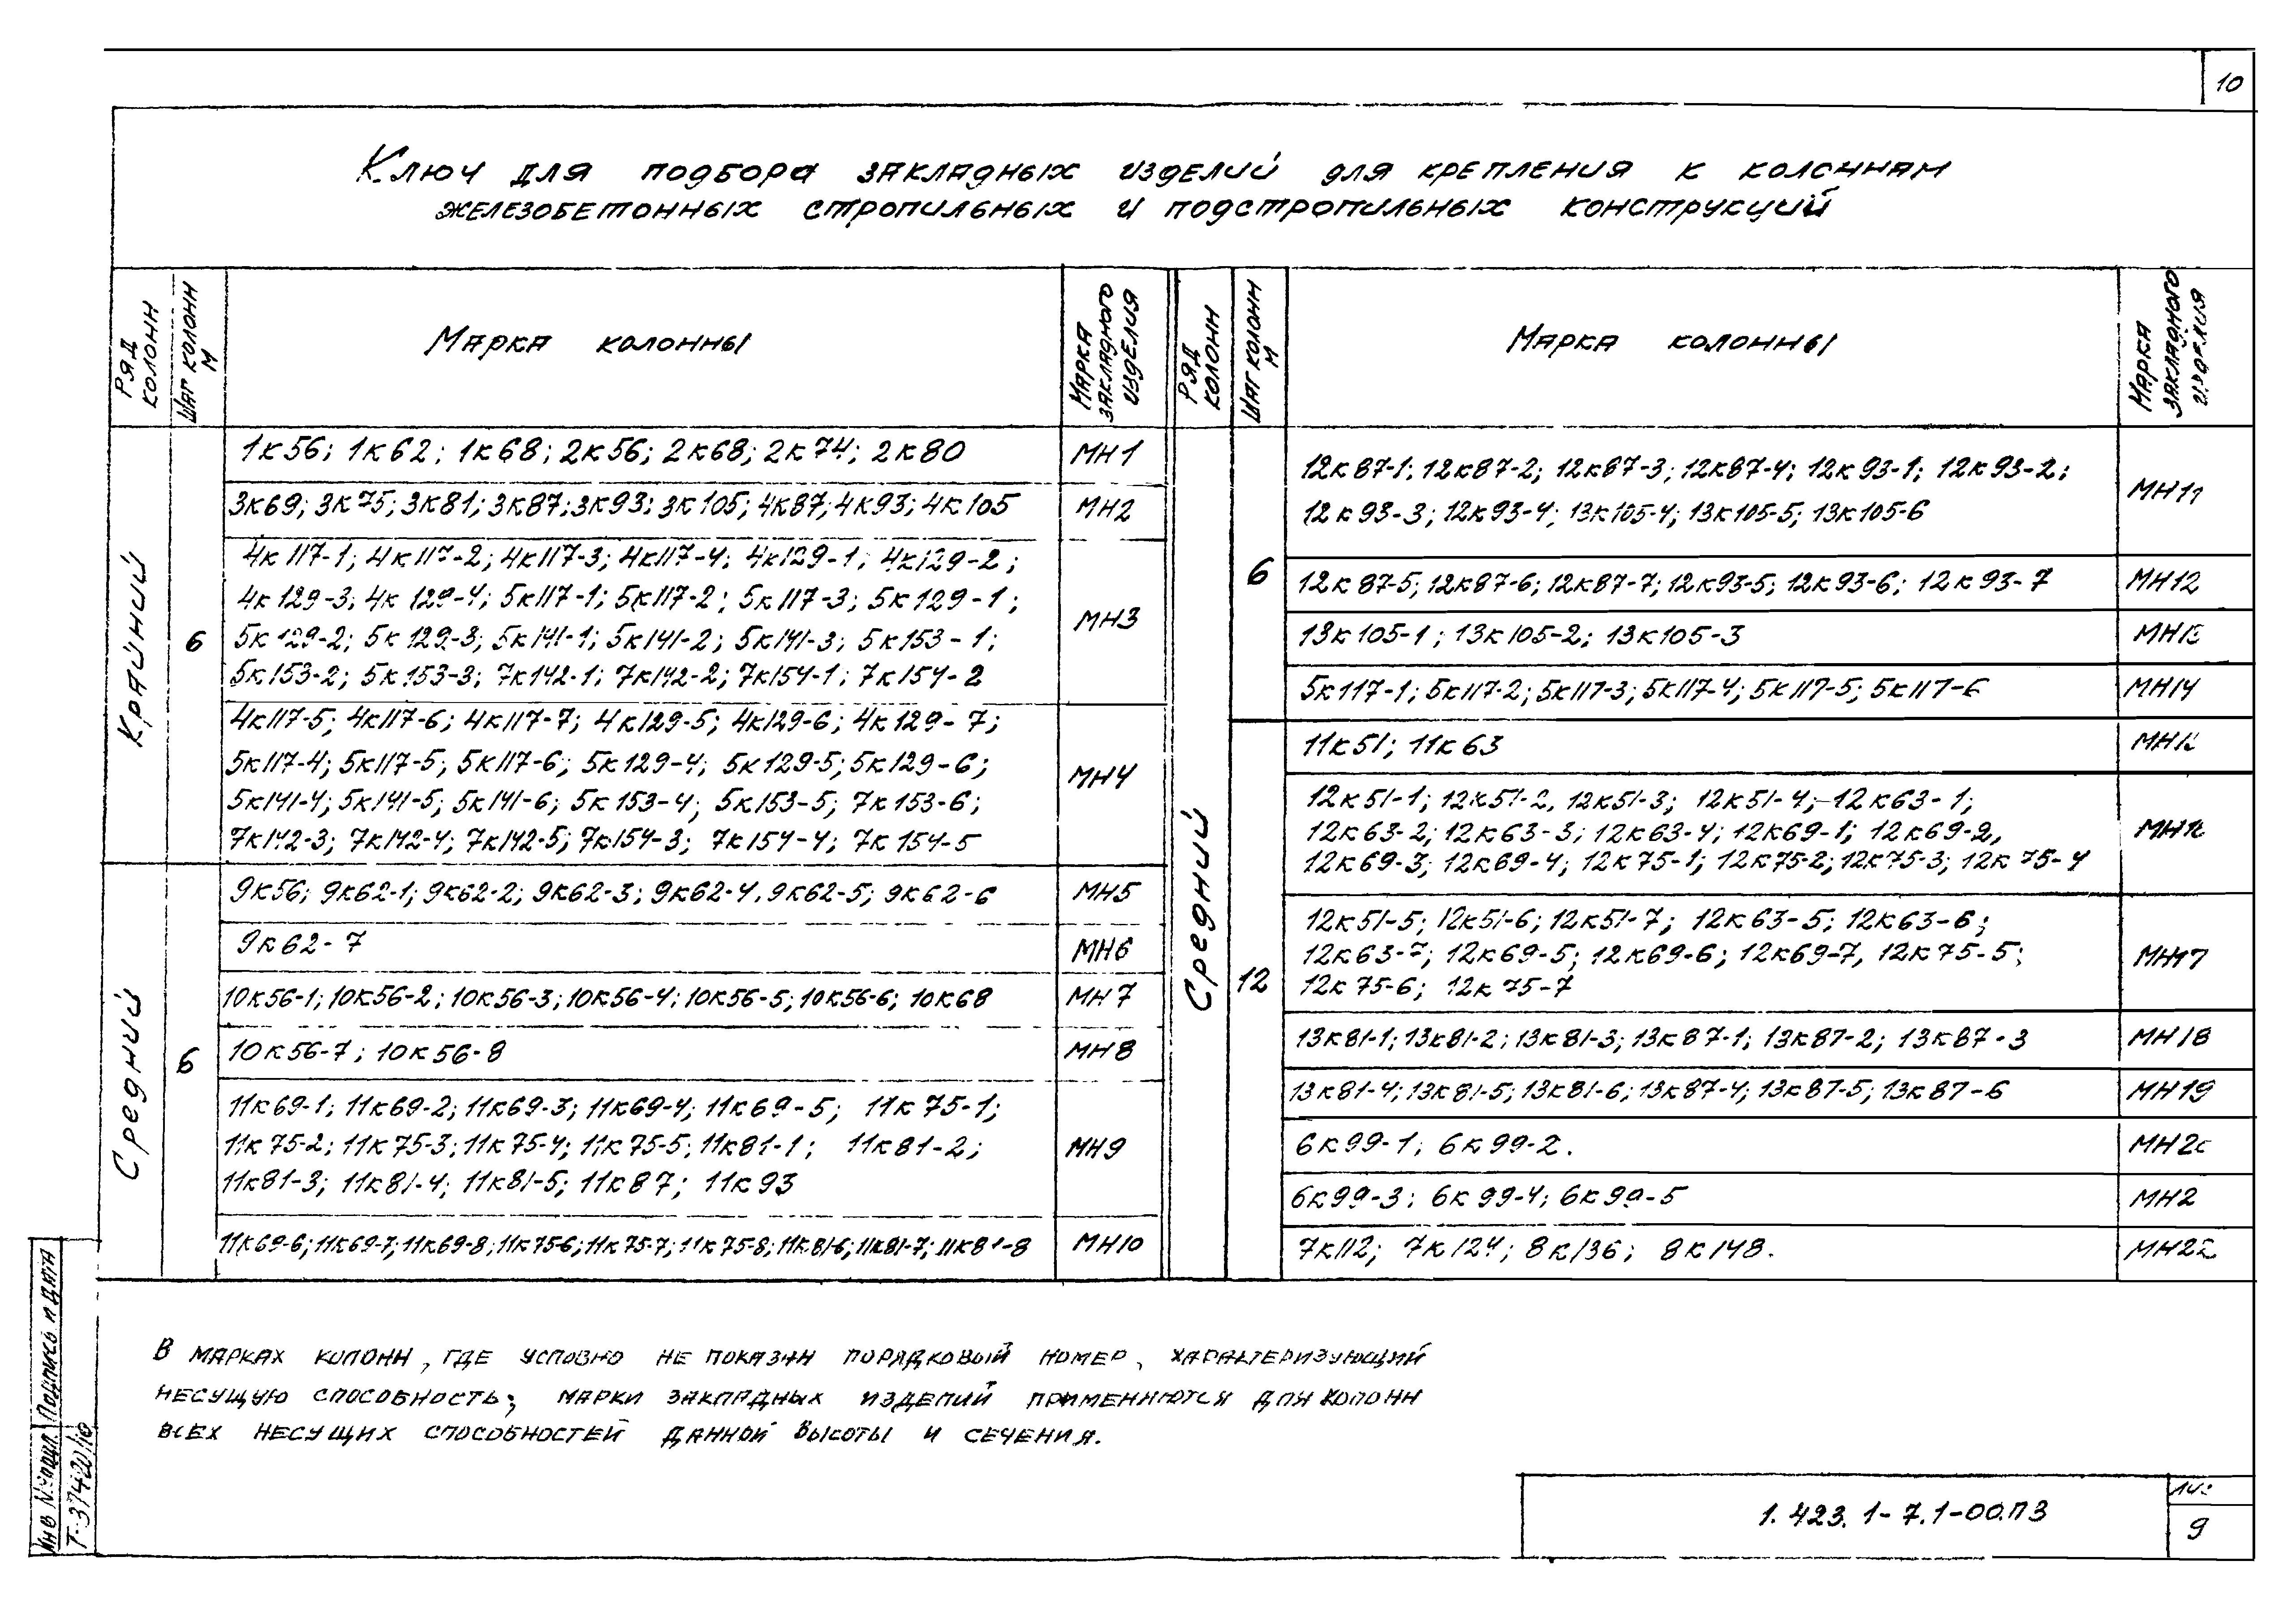 10
Ключ для подбора закладных изделий для крепления к колоннам
железобетонных стропильных и подстропильных конструкций
Ряд колонн
Шаг колонн м
Марка колонны
Марка закладного изделия
Крайний
6
1к56; 1к62; 1к68; 2к56; 2к68; 2к74; 2к80
МН1
3к69; 3к75; 3к81; 3к87; 3к93; 3к105; 4к87; 4к93; 4к105
МН2
4к117-1; 4к117-2; 4к117-3; 4к117-4; 4к129-1; 4к129-2;
4к129-3; 4к129-4; 5к117-1; 5к117-2; 5к117-3; 5к129-1;
5к129-2; 5к129-3; 5к141-1; 5к141-2; 5к141-3; 5к153-1;
5к153-2; 5к153-3; 7к142-1; 7к142-2; 7к154-1; 7к154-2
МН3
4к117-5; 4к117-6; 4к117-7; 4к129-5; 4к129-6; 4к129-7;
5к117-4; 5к117-5; 5к117-6; 5к129-4; 5к129-5; 5к129-6;
5к141-4; 5к141-5; 5к141-6; 5к153-4; 5к153-5; 7к153-6;
7к142-3; 7к142-4; 7к142-5; 7к154-3; 7к154-4; 7к154-5
МН4
Средний
6
9к56; 9к62-1; 9к62-2; 9к62-3; 9к62-4. 9к62-5; 9к62-6
МН5
9к62-7
МН6
10к56-1; 10к56-2; 10к56-3; 10к56-4; 10к56-5; 10к56-6; 10к68
МН7
10к56-7; 10к56-8
МН8
11к69-1; 11к69-2; 11к69-3; 11к69-4; 11к69-5; 11к75-1;
11к75-2; 11к75-3; 11к75-4; 11к75-5; 11к81-1; 11к81-2;
11к81-3; 11к81-4; 11к81-5; 11к87; 11к93
МН9
11к69-6; 11к69-7; 11к69-8; 11к75-6; 11к75-7; 11к75-8; 11к81-6; 11к81-7; 11к81-8
МН10
Ряд колонн
Шаг колонн м
Марка колонны
Марка закладного изделия
Средний
6
12к87-1; 12к87-2; 12к87-3; 12к87-4; 12к93-1; 12к93-2;
12к93-3; 12к93-4; 13к105-4; 13к105-5; 13к105-6
МН11
12к87-5; 12к87-6; 12к87-7; 12к93-5; 12к93-6; 12к93-7
МН12
13к105-1; 13к105-2; 13к105-3
МН13
5к117-1; 5к117-2; 5к117-3; 5к117-4; 5к117-5; 5к117-6
МН14
12
11к51; 11к63
12к51-1; 12к51-2, 12к51-3; 12к51-4; 12к63-1;
12к63-2; 12к63-3; 12к63-4; 12к69-1; 12к69-2,
12к69-3; 12к69-4; 12к75-1; 12к75-2; 12к75-3; 12к75-4
12к51-5; 12к51-6; 12к51-7; 12к63-5; 12к63-6;
12к63-7; 12к69-5; 12к69-6; 12к69-7, 12к75-5;
12к75-6; 12к75-7
МН17
13к81-1; 13к81-2; 13к81-3; 13к87-1; 13к87-2; 13к87-3
МН18
13к81-4; 13к81-5; 13к81-6; 13к87-4; 13к87-5; 13к87-6
МН19
6к99-1; 6к99-2.
МН20
6к99-3; 6к99-4; 6к99-5
МН2
7к112; 7к124; 8к136; 8к148.
МН22
В марках колонн, где условно не показан порядковый номер, характеризующий
несущую способность; марки закладных изделий применяются для колонн
всех несущих способностей данной высоты и сечения.
1.423.1-7.1-00.ПЗ
9
Инв № подл Подпись и дата